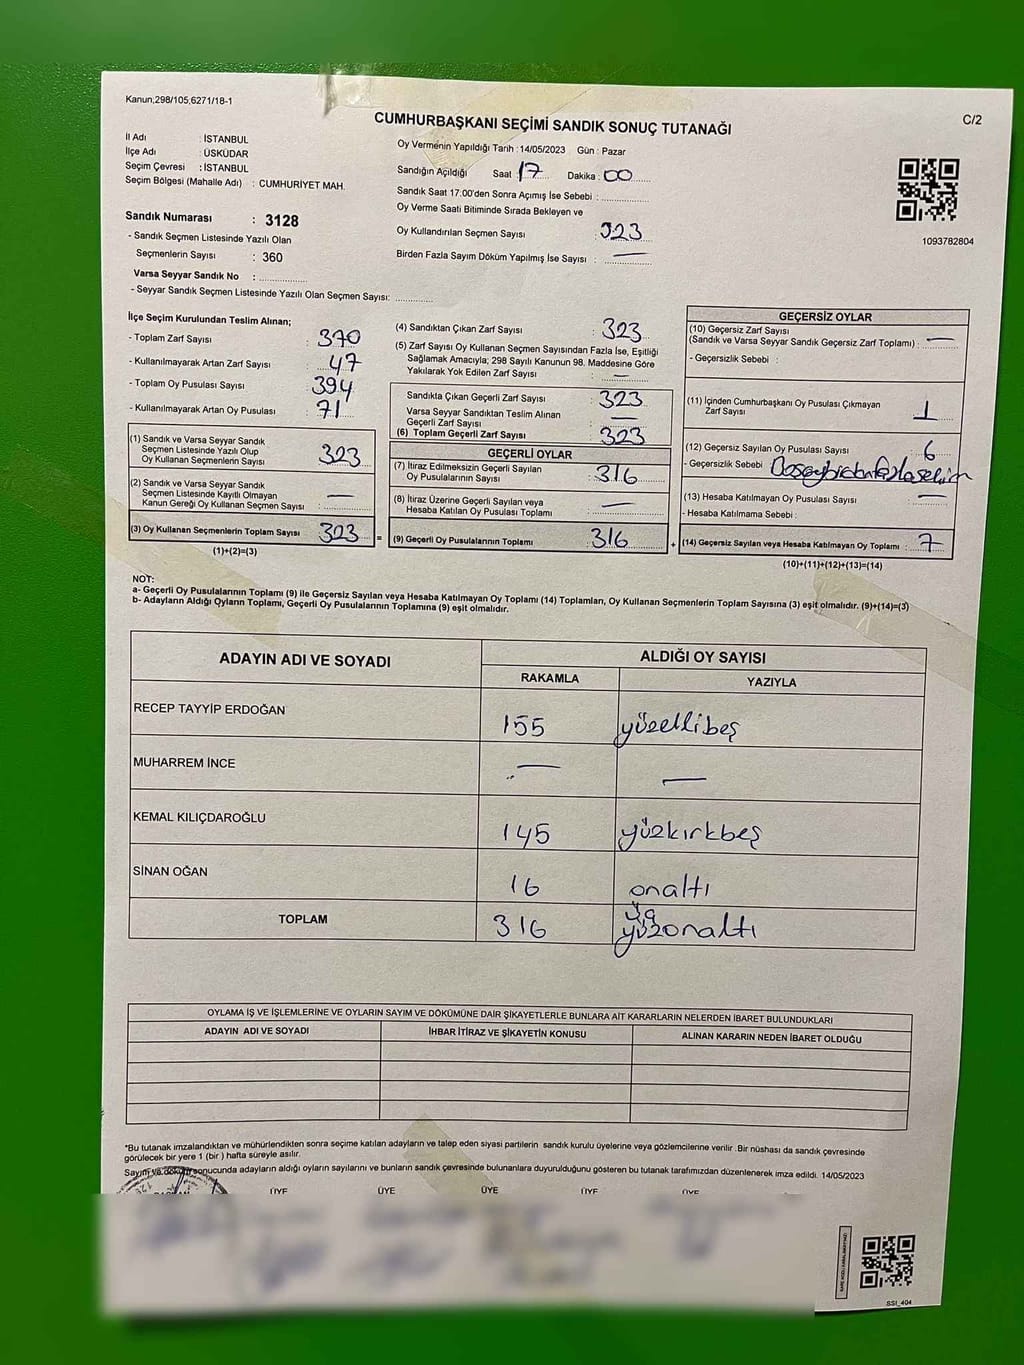 Kanun;298/105,6271/18-1
CUMHURBAŞKANI SEÇİMİ SANDIK SONUÇ TUTANAĞI
C/2
İl Adı : İSTANBUL
İlçe Adı : ÜSKÜDAR
Seçim Çevresi : İSTANBUL
Seçim Bölgesi (Mahalle Adı) : CUMHURİYET MAH.
Oy Vermenin Yapıldığı Tarih :14/05/2023 Gün : Pazar
Sandığın Açıldığı Saat : 17 Dakika : 00
Sandık Saat 17:00'den Sonra Açımış İse Sebebi :
Oy Verme Saati Bitiminde Sırada Bekleyen ve
Oy Kullandırılan Seçmen Sayısı : 323
Birden Fazla Sayım Döküm Yapılmış İse Sayısı : —
1093782804
Sandık Numarası : 3128
- Sandık Seçmen Listesinde Yazılı Olan
Seçmenlerin Sayısı : 360
Varsa Seyyar Sandık No :
- Seyyar Sandık Seçmen Listesinde Yazılı Olan Seçmen Sayısı:
İlçe Seçim Kurulundan Teslim Alınan;
- Toplam Zarf Sayısı : 370
- Kullanılmayarak Artan Zarf Sayısı : 47
- Toplam Oy Pusulası Sayısı : 394
- Kullanılmayarak Artan Oy Pusulası : 71
(1) Sandık ve Varsa Seyyar Sandık
Seçmen Listesinde Yazılı Olup
Oy Kullanan Seçmenlerin Sayısı : 323
(2) Sandık ve Varsa Seyyar Sandık
Seçmen Listesinde Kayıtlı Olmayan
Kanun Gereği Oy Kullanan Seçmen Sayısı : —
(3) Oy Kullanan Seçmenlerin Toplam Sayısı : 323 =
(1)+(2)=(3)
(4) Sandıktan Çıkan Zarf Sayısı : 323
(5) Zarf Sayısı Oy Kullanan Seçmen Sayısından Fazla İse, Eşitliği
Sağlamak Amacıyla; 298 Sayılı Kanunun 98. Maddesine Göre
Yakılarak Yok Edilen Zarf Sayısı : —
Sandıkta Çıkan Geçerli Zarf Sayısı : 323
Varsa Seyyar Sandıktan Teslim Alınan
Geçerli Zarf Sayısı : —
(6) Toplam Geçerli Zarf Sayısı : 323
GEÇERLİ OYLAR
(7) İtiraz Edilmeksizin Geçerli Sayılan
Oy Pusulalarının Sayısı : 316
(8) İtiraz Üzerine Geçerli Sayılan veya
Hesaba Katılan Oy Pusulası Toplamı : —
(9) Geçerli Oy Pusulalarının Toplamı : 316 +
GEÇERSİZ OYLAR
(10) Geçersiz Zarf Sayısı
(Sandık ve Varsa Seyyar Sandık Geçersiz Zarf Toplamı) : —
- Geçersizlik Sebebi :
(11) İçinden Cumhurbaşkanı Oy Pusulası Çıkmayan
Zarf Sayısı : 1
(12) Geçersiz Sayılan Oy Pusulası Sayısı : 6
- Geçersizlik Sebebi
(13) Hesaba Katılmayan Oy Pusulası Sayısı : —
- Hesaba Katılmama Sebebi :
(14) Geçersiz Sayılan veya Hesaba Katılmayan Oy Toplamı : 7
(10)+(11)+(12)+(13)=(14)
NOT:
a- Geçerli Oy Pusulalarının Toplamı (9) ile Geçersiz Sayılan veya Hesaba Katılmayan Oy Toplamı (14) Toplamları, Oy Kullanan Seçmenlerin Toplam Sayısına (3) eşit olmalıdır. (9)+(14)=(3)
b- Adayların Aldığı Oyların Toplamı, Geçerli Oy Pusulalarının Toplamına (9) eşit olmalıdır.
ADAYIN ADI VE SOYADI
ALDIĞI OY SAYISI
RAKAMLA YAZIYLA
RECEP TAYYİP ERDOĞAN 155 yüzellibeş
MUHARREM İNCE — —
KEMAL KILIÇDAROĞLU 145 yüzkırkbeş
SİNAN OĞAN 16 onaltı
TOPLAM 316 üç yüzonaltı
OYLAMA İŞ VE İŞLEMLERİNE VE OYLARIN SAYIM VE DÖKÜMÜNE DAİR ŞİKAYETLERLE BUNLARA AİT KARARLARIN NELERDEN İBARET BULUNDUKLARI
ADAYIN ADI VE SOYADI İHBAR İTİRAZ VE ŞİKAYETİN KONUSU ALINAN KARARIN NEDEN İBARET OLDUĞU
*Bu tutanak imzalandıktan ve mühürlendikten sonra seçime katılan adayların ve talep eden siyasi partilerin sandık kurulu üyelerine veya gözlemcilerine verilir .Bir nüshası da sandık çevresinde
görülecek bir yere 1 (bir ) hafta süreyle asılır.
Sayım ve döküm sonucunda adayların aldığı oyların sayılarını ve bunların sandık çevresinde bulunanlara duyurulduğunu gösteren bu tutanak tarafımızdan düzenlenerek imza edildi. 14/05/2023
ÜYE ÜYE ÜYE ÜYE ÜYE
SSI_404